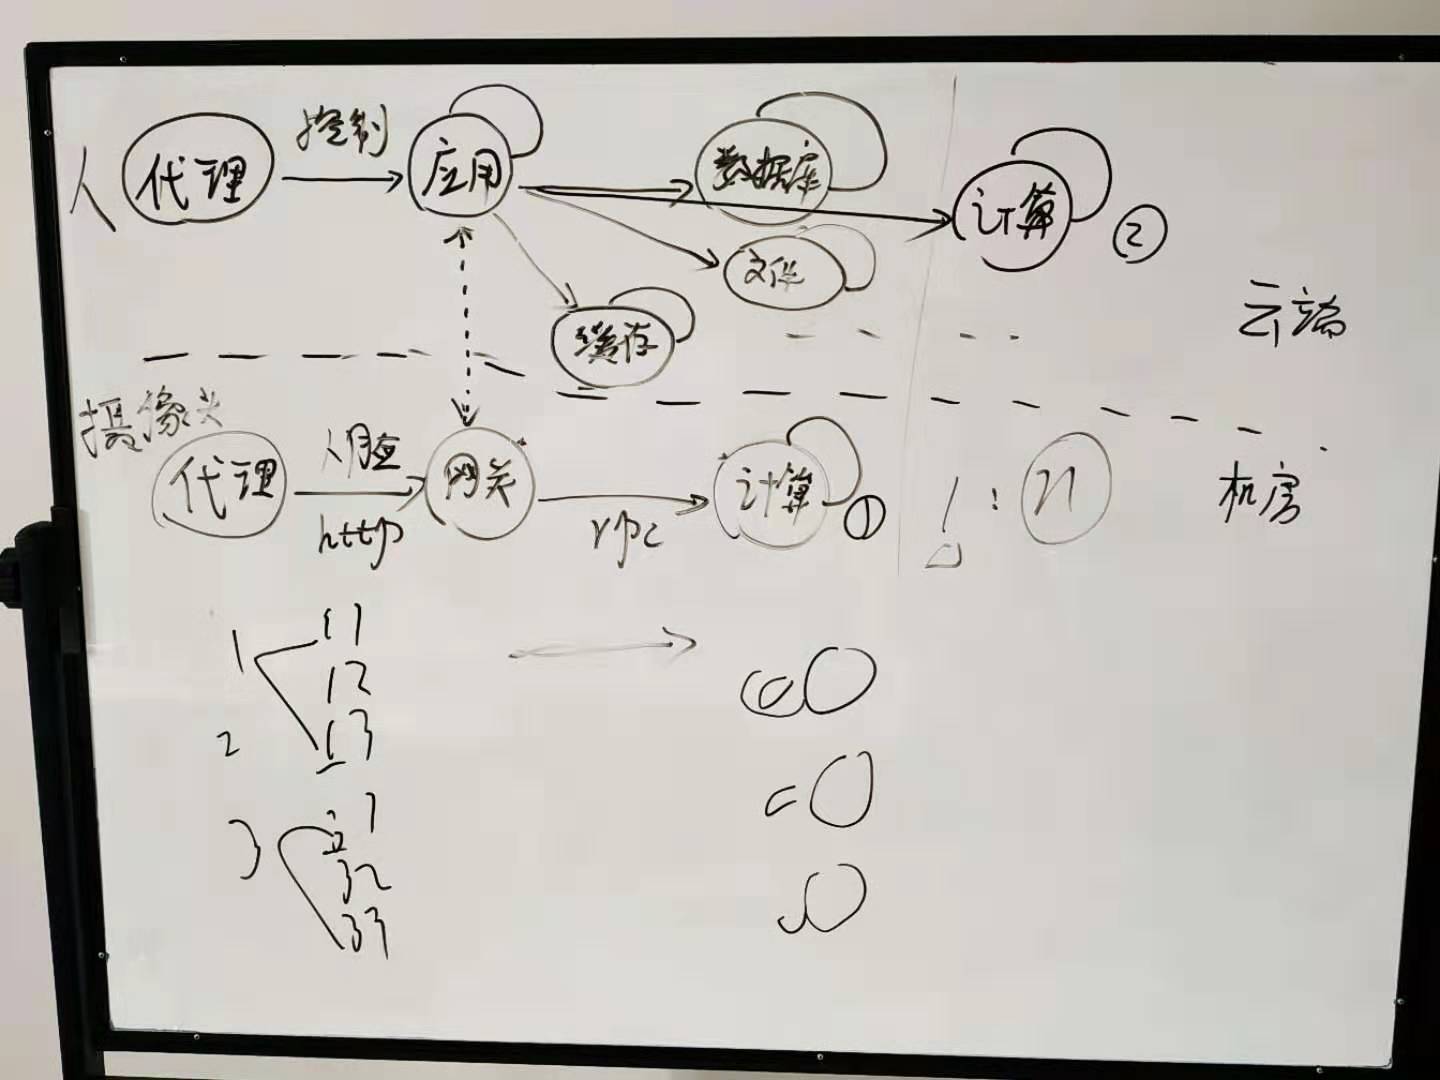 人 代理 控制 应用 数据库 计算 ②
文件
缓存
云端
摄像头
代理 人脸 http 网关 rpc 计算 ① 1:n 机房
1 11
12
2 13
31
3 32
33